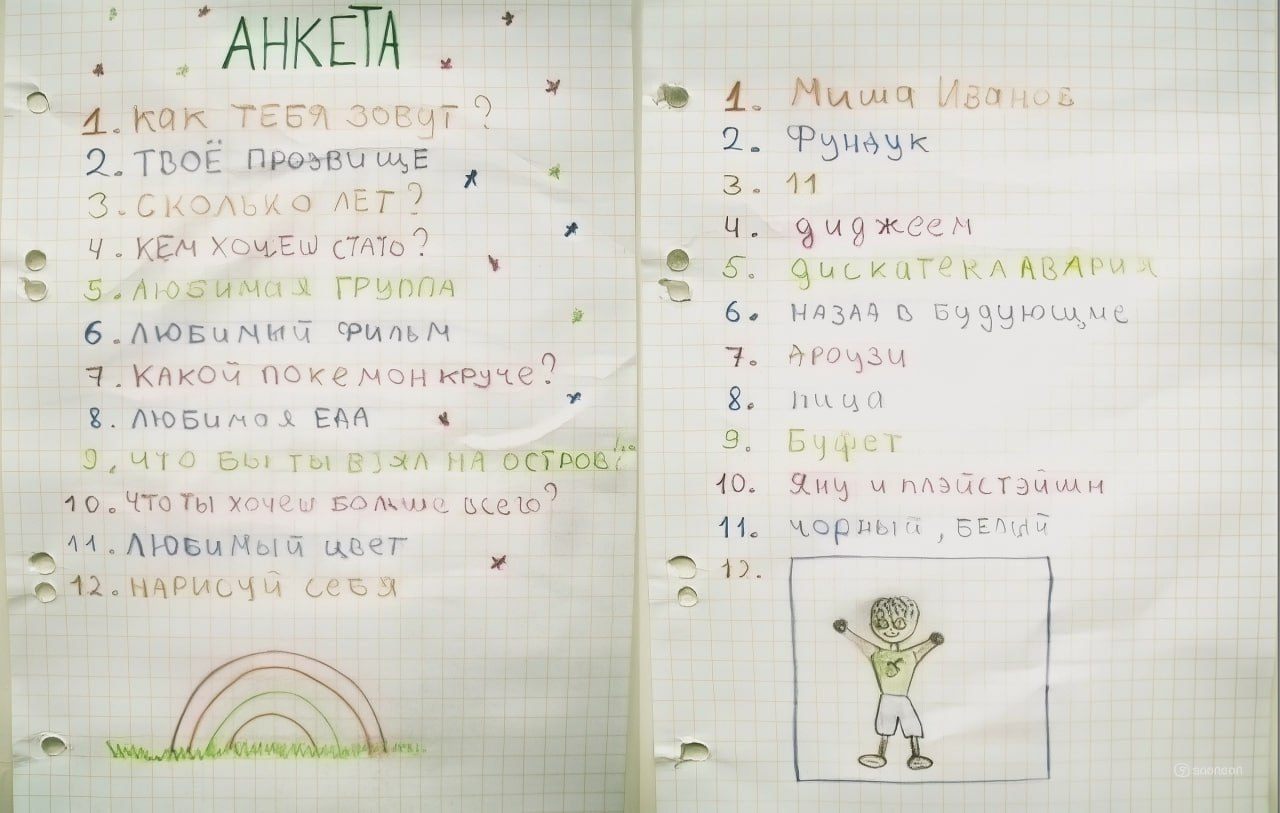 АНКЕТА
1. КАК ТЕБЯ ЗОВУТ?
2. ТВОЁ ПРОЗВИЩЕ
3. СКОЛЬКО ЛЕТ?
4. КЕМ ХОЧЕШ СТАТЬ?
5. ЛЮБИМАЯ ГРУППА
6. ЛЮБИМЫЙ ФИЛЬМ
7. КАКОЙ ПОКЕМОН КРУЧЕ?
8. ЛЮБИМАЯ ЕДА
9. ЧТО БЫ ТЫ ВЗЯЛ НА ОСТРОВ?
10. ЧТО ТЫ ХОЧЕШ БОЛЬШЕ ВСЕГО?
11. ЛЮБИМЫЙ ЦВЕТ
12. НАРИСУЙ СЕБЯ
1. Миша Иванов
2. Фундук
3. 11
4. диджеем
5. дискатека АВАРИЯ
6. НАЗАД В БУДУЮЩИЕ
7. АРОУЗИ
8. пица
9. Буфет
10. Яну и плэйстэйшн
11. чорный, БЕЛЫЙ
12.